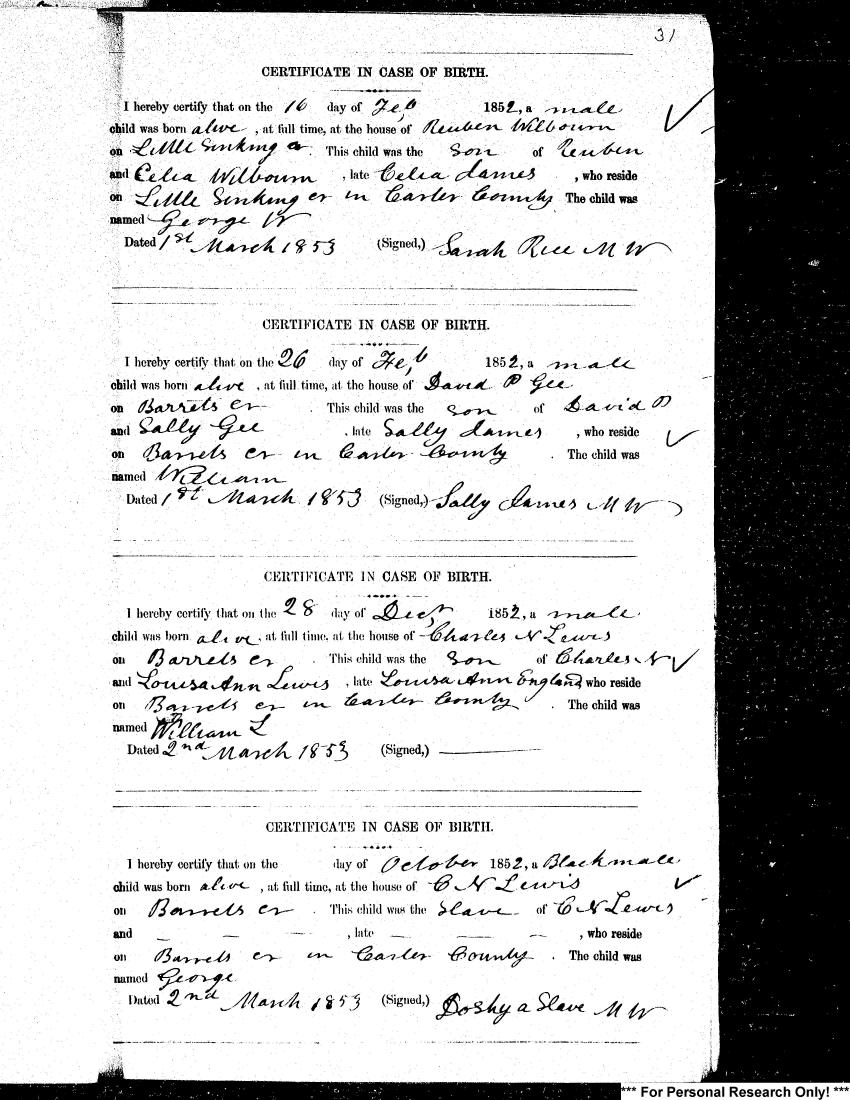 31
CERTIFICATE IN CASE OF BIRTH.
I hereby certify that on the 16 day of Feb 1852, a male
child was born alive, at full time, at the house of Reuben Wilbourn
on Little Sinking cr. This child was the Son of Reuben
and Celia Wilbourn, late Celia James, who reside
on Little Sinking cr in Carter County The child was
named George W
Dated 1st March 1853 (Signed,) Sarah Rice M W
CERTIFICATE IN CASE OF BIRTH.
I hereby certify that on the 26 day of Feb 1852, a male
child was born alive, at full time, at the house of David P Gee
on Barrets cr. This child was the son of David P
and Sally Gee, late Sally James, who reside
on Barrets cr in Carter County. The child was
named William
Dated 1st March 1853 (Signed,) Sally James M W
CERTIFICATE IN CASE OF BIRTH.
I hereby certify that on the 28 day of Decr 1852, a male
child was born alive, at full time, at the house of Charles N Lewis
on Barrets cr. This child was the Son of Charles N
and Louisa Ann Lewis, late Louisa Ann England who reside
on Barrets cr in Carter County. The child was
named William L
Dated 2nd March 1853 (Signed,)
CERTIFICATE IN CASE OF BIRTH.
I hereby certify that on the day of October 1852, a Black male
child was born alive, at full time, at the house of C N Lewis
on Barrets cr. This child was the Slave of C N Lewis
and — — —, late — — —, who reside
on Barrets cr in Carter County. The child was
named George
Dated 2nd March 1853 (Signed,) Doshy a Slave M W
*** For Personal Research Only! ***